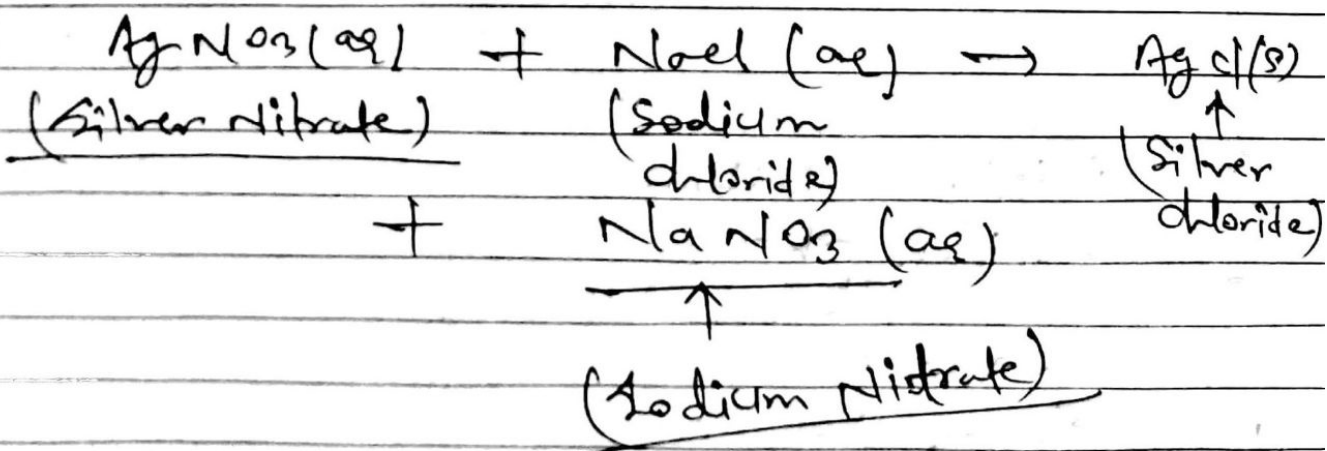 AgNO3(aq) + NaCl (aq) → AgCl(s)
(Silver Nitrate) (Sodium chloride) ↑ (Silver chloride)
+ NaNO3 (aq)
↑
(Sodium Nitrate)